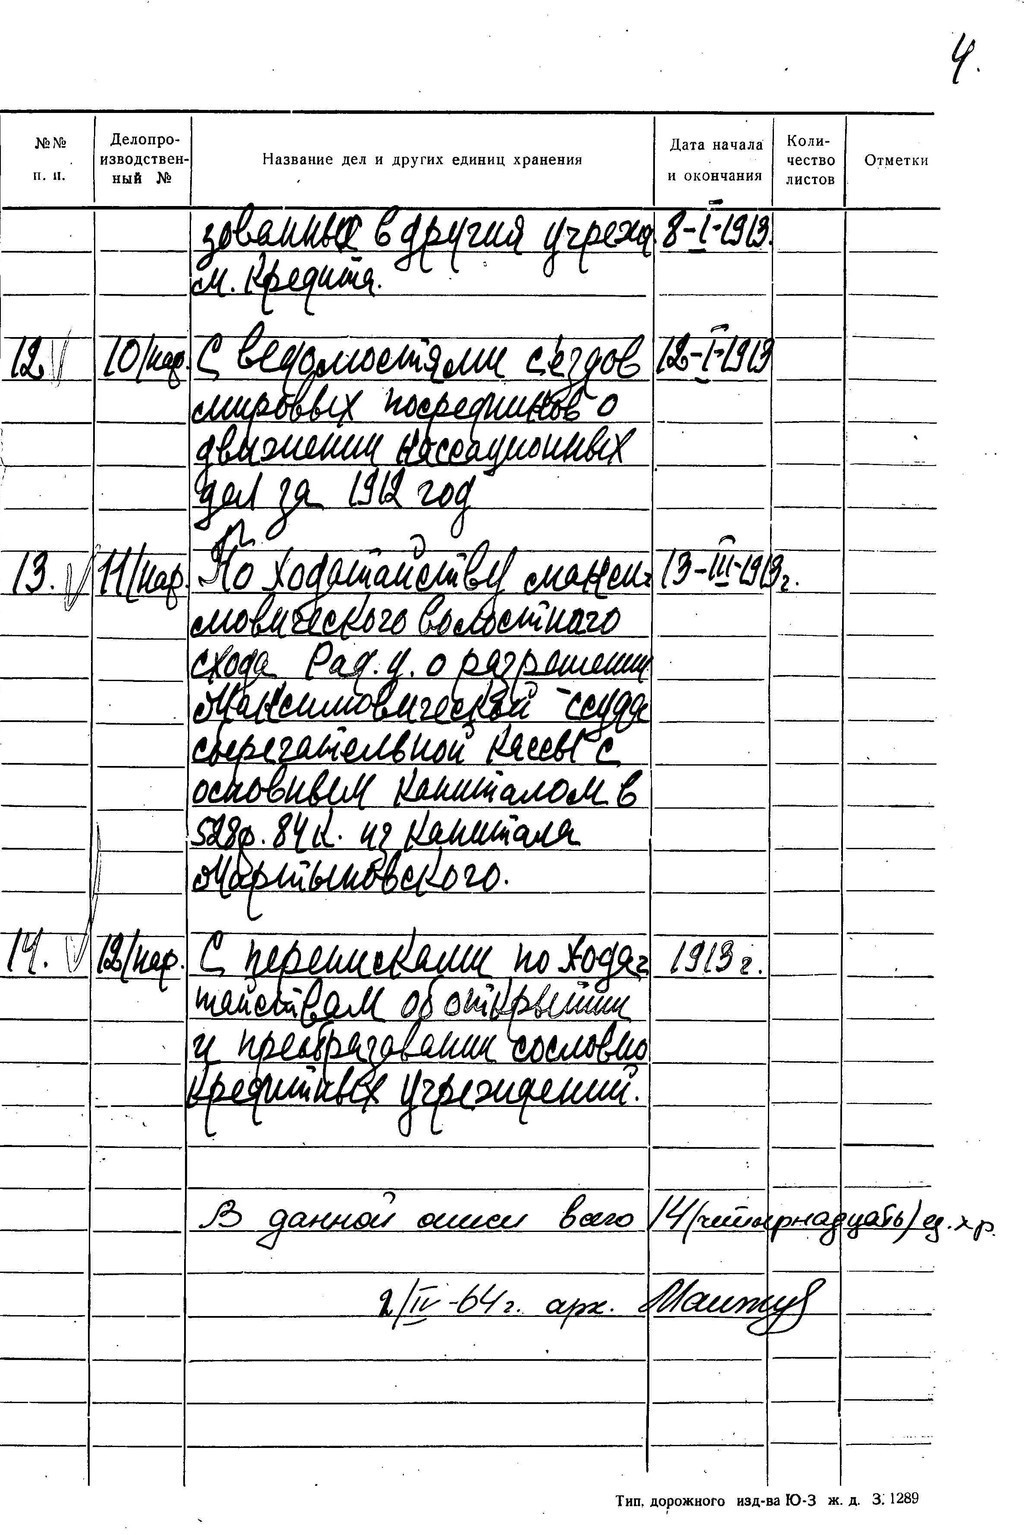 4.
№№ п. п.
Делопро-
изводствен-
ный №
Название дел и других единиц хранения
Дата начала
и окончания
Коли-
чество
листов
Отметки
зованных в другия учрежд. 8-I-1913.
м. Кредита.
12. 10/нар. С ведомостями с'ездов 12-I-1913
мировых посредников о
движении кассационных
дел за 1912 год
13. 11/нар. По ходатайству макси- 13-III-1913г.
мовического волостного
схода Рад. у. о разрешении
Максимовической ссудо
сберегательной кассы с
основным капиталом в
528р. 84к. из капитала
Мартыновского.
14. 12/нар. С переписками по хода- 1913 г.
тайствам об открытии
и преобразовании сословно
кредитных учреждений.
В данной описи всего 14 (четырнадцать) ед. хр.
2/IV-64 г. арх.
Тип. дорожного изд-ва Ю-З ж. д. З. 1289